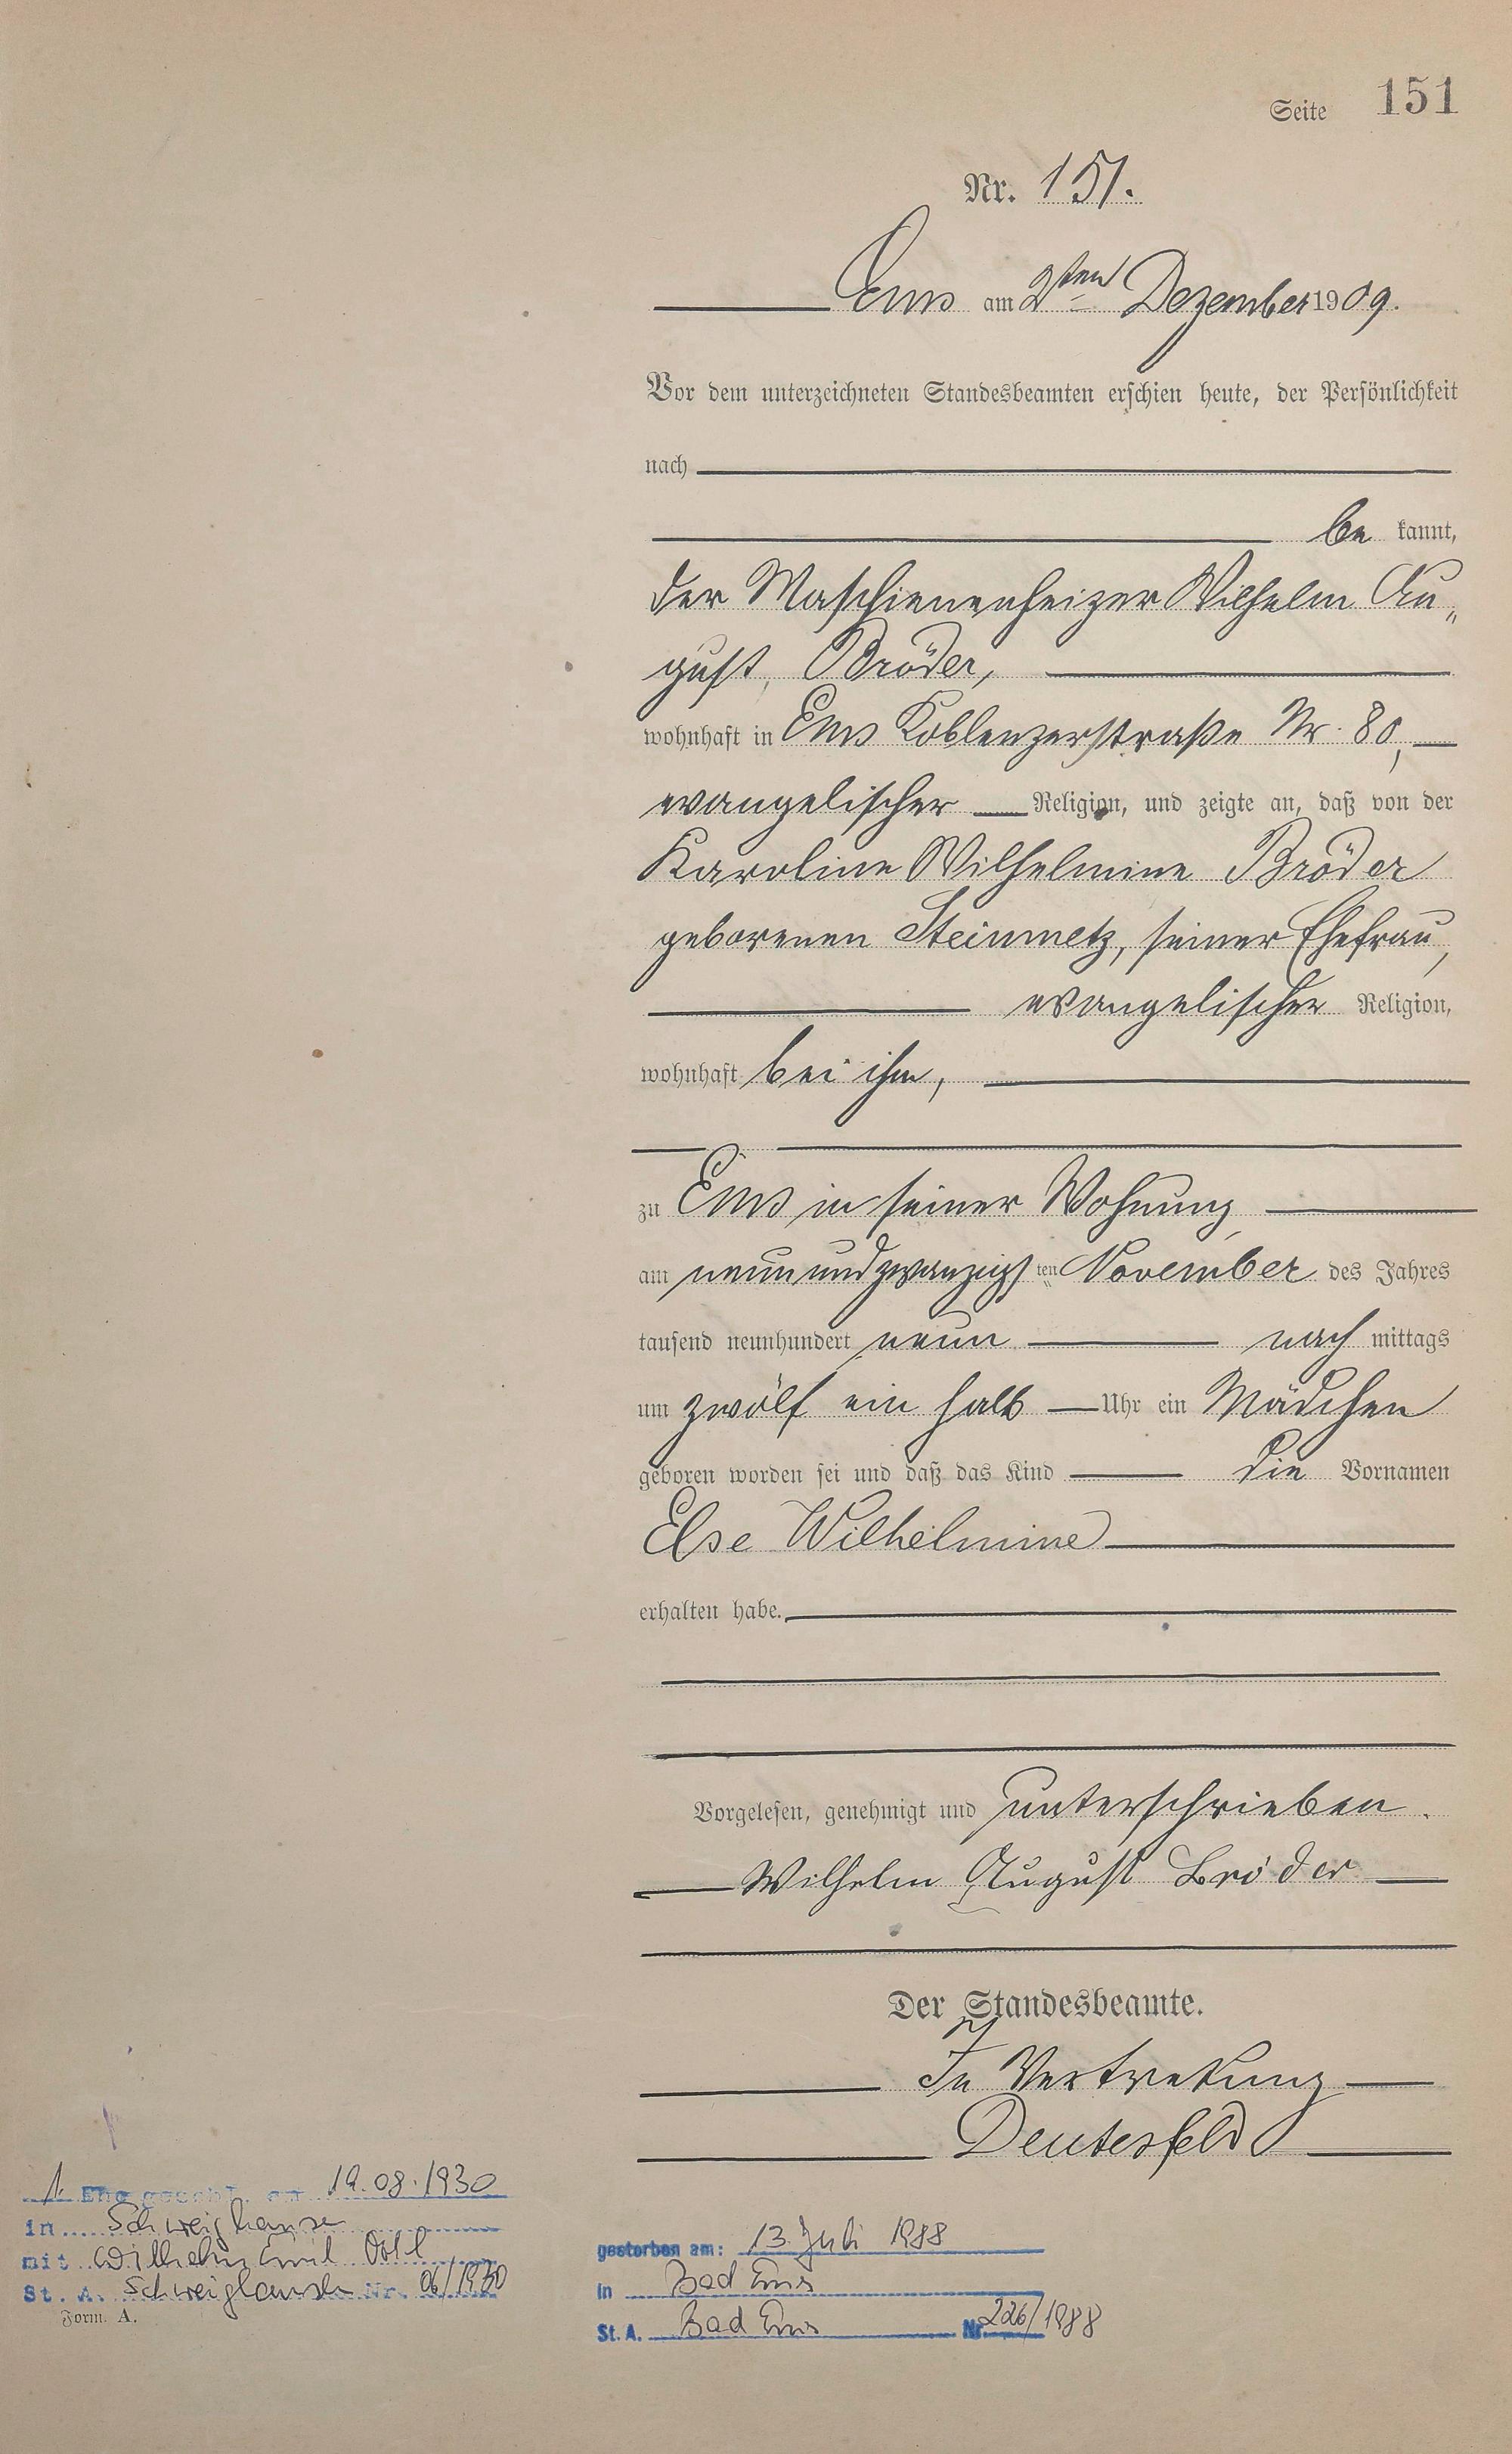 Seite 151
Nr. 151.
Ems am 2ten Dezember 1909.
Vor dem unterzeichneten Standesbeamten erschien heute, der Persönlichkeit
nach
be kannt,
der Maschienenheizer Wilhelm Au„
gust, Bröder,
wohnhaft in Ems Koblenzerstraße Nr. 80,
evangelischer Religion, und zeigte an, daß von der
Karoline Wilhelmine Bröder
geborenen Steinmetz, seiner Ehefrau,
evangelischer Religion,
wohnhaft bei ihm,
zu Ems in seiner Wohnung
am neunundzwanzigsten November des Jahres
tausend neunhundert neun nach mittags
um zwölf ein halb Uhr ein Mädchen
geboren worden sei und daß das Kind die Vornamen
Else Wilhelmine
erhalten habe.
Vorgelesen, genehmigt und unterschrieben.
Wilhelm August Bröder
Der Standesbeamte.
In Vertretung
Deutesfeld
1. Ehe geschl. am 19.08.1930
in Schweighausen
mit Wilhelm Emil
St. A. Schweighausen Nr. 06/1930
Form. A.
gestorben am: 13. Juli 1988
in Bad Ems
St. A. Bad Ems Nr. 226/1988